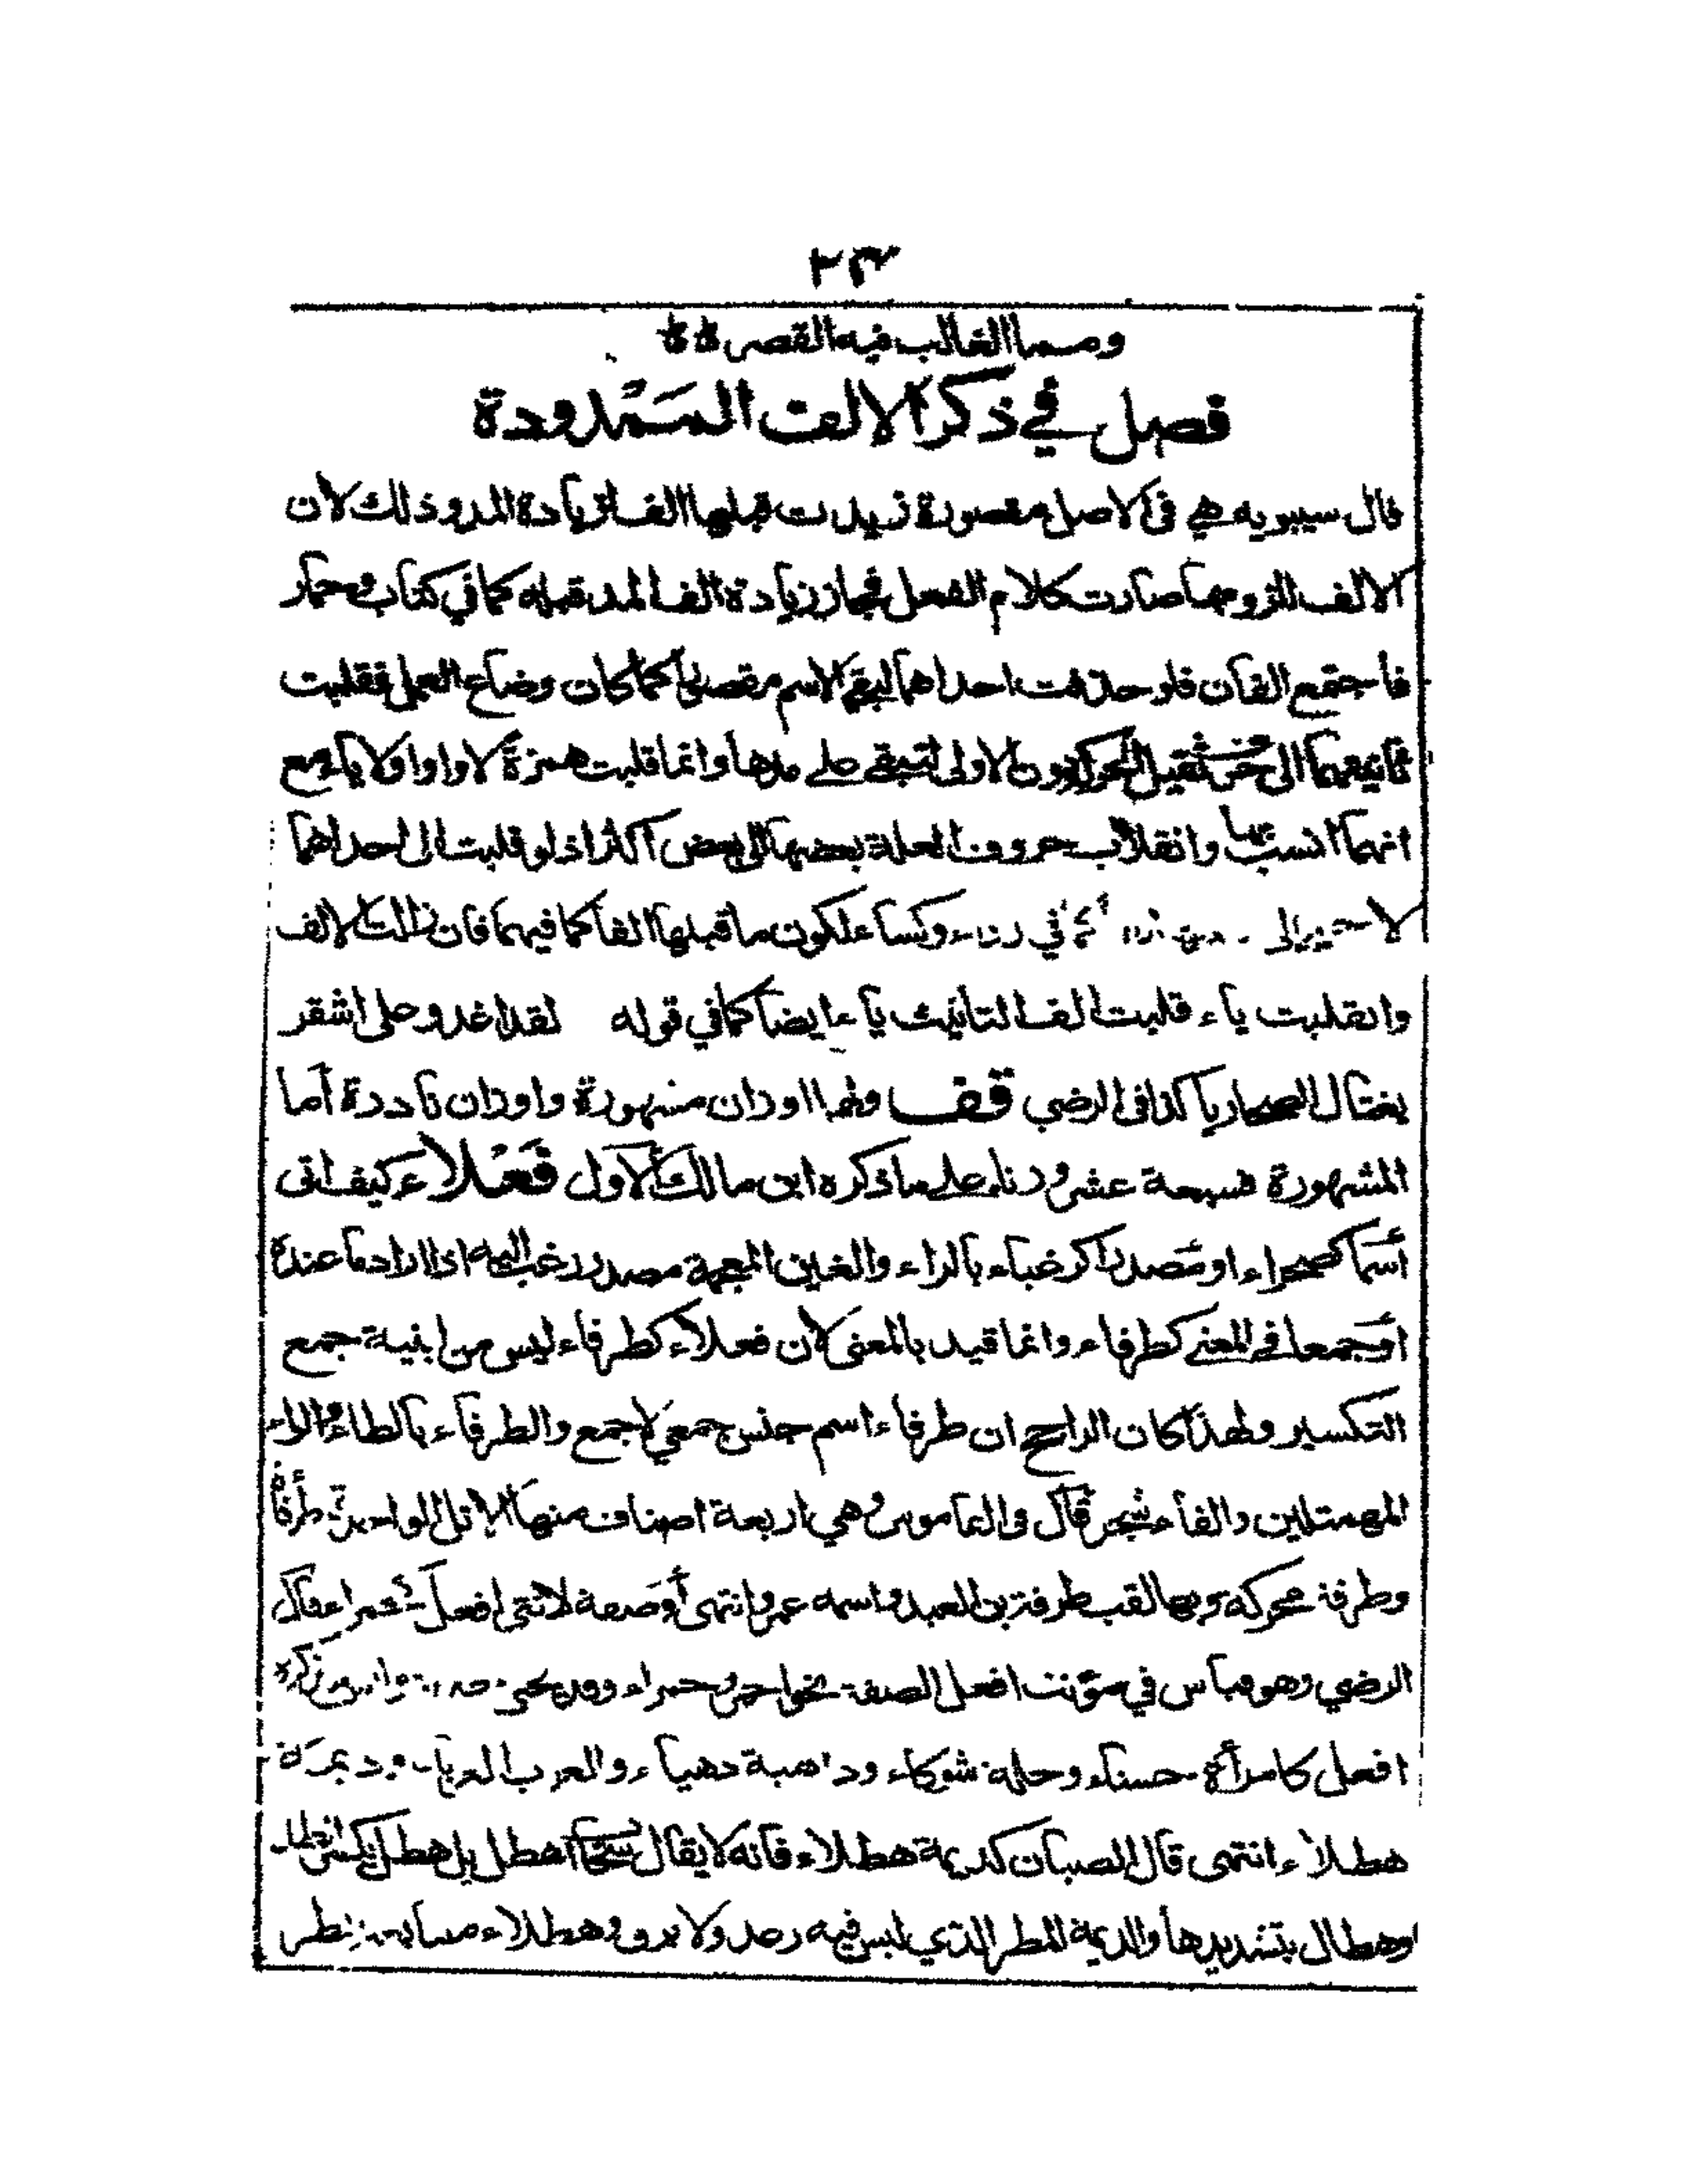 ٢٣
ومما الغالب فيه القصر
فصل في ذكر الالف الممدودة
قال سيبويه هي في الاصل مقصورة زيدت قبلها الف لزيادة المد وذلك لان
الالف للزومها صارت كلام الفعل فجاز زيادة الف المد قبله كما في كتاب وحمار
فاجتمع الفان فلو حذفت احداهما لبقي الاسم مقصورا كما كان وضاع العمل فقلبت
ثانيهما الى حرف يقبل الحركة دون الاولى لتبقى على مدها وانما قلبت همزة لا واوا ولا ياء مع
انهما انسب بها وانقلاب حروف العلة بعضها الى بعض اكثر اذ لو قلبت الى احداهما
لاحتيج الى كما في رداء وكساء لكون ما قبلها الفا كما فيهما فان زالت الالف
وانقلبت ياء قلبت الف التأنيث ياء ايضا كما في قوله لقد اغدو على اشقر
يغتال الصحاريا كذا في الرضي قف ولها اوزان مشهورة واوزان نادرة اما
المشهورة فسبعة عشر وزنا على ما ذكره ابن مالك الاول فَعْلاء كيف اتى
أسما كصحراء او مصدرا كرغباء بالراء والغين المعجمة مصدر رغب اليه اذا اراد ما عنده
أو جمعا في المعنى كطرفاء وانما قيد بالمعنى لان فعلاء كطرفاء ليس من ابنية جمع
التكسير ولهذا كان الراجح ان طرفاء اسم جنس جمعي لا جمع والطرفاء بالطاء والراء
المهملتين والفاء شجر قال في القاموس وهي اربعة اصناف منها الاثل الواحدة طرفاءة
وطرفة محركة وبها لقب طرفة بن العبد واسمه عمرو انتهى أو صفة لانثى افعل كحمراء قال
الرضي وهو قياس في مؤنث افعل الصفة نحو احمر وحمراء وقد يجيء
افعل كامرأة حسناء وحلة شوكاء وداهية دهياء والعرب العرباء وديمة
هطلاء انتهى قال الصبان كديمة هطلاء فانه لا يقال سحاب اهطل بل هطل بكسر الطاء
وهطال بتشديدها والديمة المطر الذي ليس فيه رعد ولا برق وهطلاء متتابعة المطر